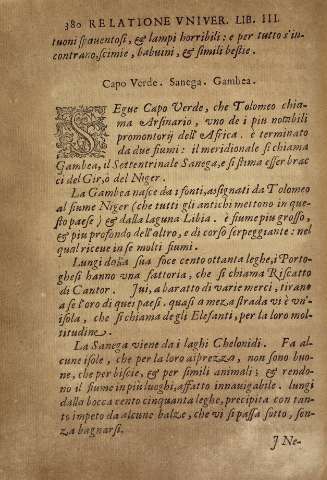 380 RELATIONE VNIVER. LIB. III.
tuoni spauentosi, & lampi horribili: e per tutto s'in-
contrano,scimie, babuini, & simili bestie.
Capo Verde. Sanega. Gambea.
SEgue Capo Verde, che Tolomeo chia-
ma Arsinario, vno de i piu notabili
promontorij dell'Africa. è terminato
da due fiumi: il meridionale si chiama
Gambea, il Settentrinale Sanega, e si stima esser brac
ci del Gir, ò del Niger.
La Gambea nasce da i fonti, assignati da Tolomeo
al fiume Niger (che tutti gli antichi mettono in que-
sto paese) & dalla laguna Libia. è fiume piu grosso,
& piu profondo dell'altro, e di corso serpeggiante: nel
qual riceue in se molti fiumi.
Lungi dalla sua foce cento ottanta leghe, i Porto-
ghesi hanno vna fattoria, che si chiama Riscatto
di Cantor. Iui, a baratto di varie merci, tirano
a se l'oro di quei paesi. quasi a meza strada vi è vn'i-
isola, che si chiama degli Elefanti, per la loro mol-
titudine.
La Sanega viene da i laghi Chelonidi. Fa al-
cune isole, che per la loro asprezza, non sono buo-
ne, che per biscie, & per simili animali; & rendo-
no il fiume in piu luoghi, affatto innauigabile. lungi
dalla bocca cento cinquanta leghe, precipita con tan-
to impeto da alcune balze, che vi si passa sotto, sen-
za bagnarsi.
I Ne-